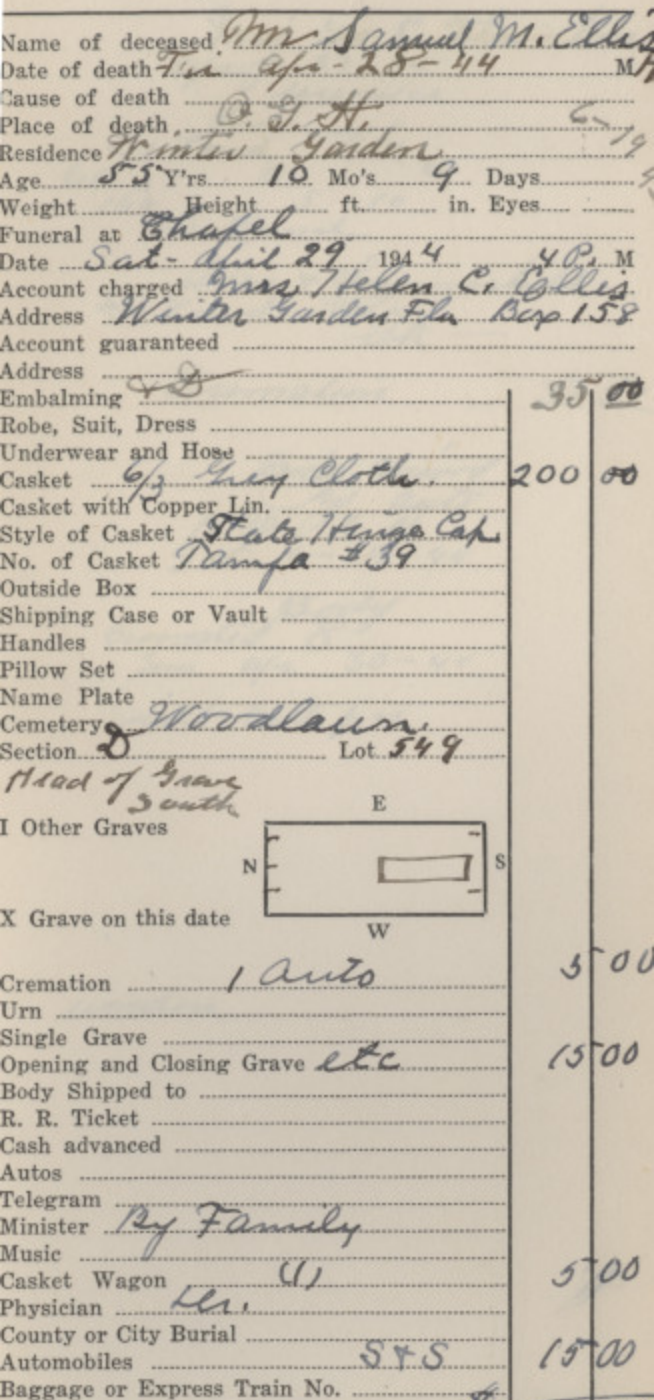 Name of deceased Mr Samuel M. Ellis
Date of death Fri Apr - 28 - 44 M
Cause of death
Place of death O. G. H. 6-19
Residence Winter Garden
Age 55 Y'rs 10 Mo's 9 Days
Weight Height ft. in. Eyes
Funeral at Chapel
Date Sat - April 29 1944 4 P. M
Account charged Mrs Helen C. Ellis
Address Winter Garden Fla Box 158
Account guaranteed
Address
Embalming & D 35 00
Robe, Suit, Dress
Underwear and Hose
Casket 6/3 Grey Cloth. 200 00
Casket with Copper Lin.
Style of Casket State Hinge Cap
No. of Casket Tampa #39
Outside Box
Shipping Case or Vault
Handles
Pillow Set
Name Plate
Cemetery Woodlawn.
Section D Lot 549
Head of Grave
South
E
I Other Graves
N S
X Grave on this date
W
Cremation 1 Auto 5 00
Urn
Single Grave
Opening and Closing Grave etc 15 00
Body Shipped to
R. R. Ticket
Cash advanced
Autos
Telegram
Minister By Family
Music
Casket Wagon (1) 5 00
Physician
County or City Burial
Automobiles S & S 15 00
Baggage or Express Train No.